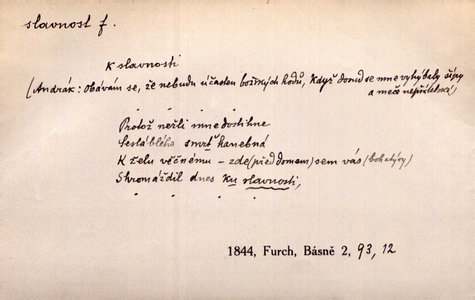 slavnost f.
K slavnosti
(Andrák: Obávám se, že nebudu účasten božských hodů, když dosud se mne vyhýbaly šípy
a meče nepřátelské)
. . . .
Protož nežli mne dostihne
Sesláblého smrť hanebná
K želu věčnému – zde (před domem) sem vás (bohatýry)
Shromáždil dnes ku slavnosti,
. . . .
1844, Furch, Básně 2, 93, 12